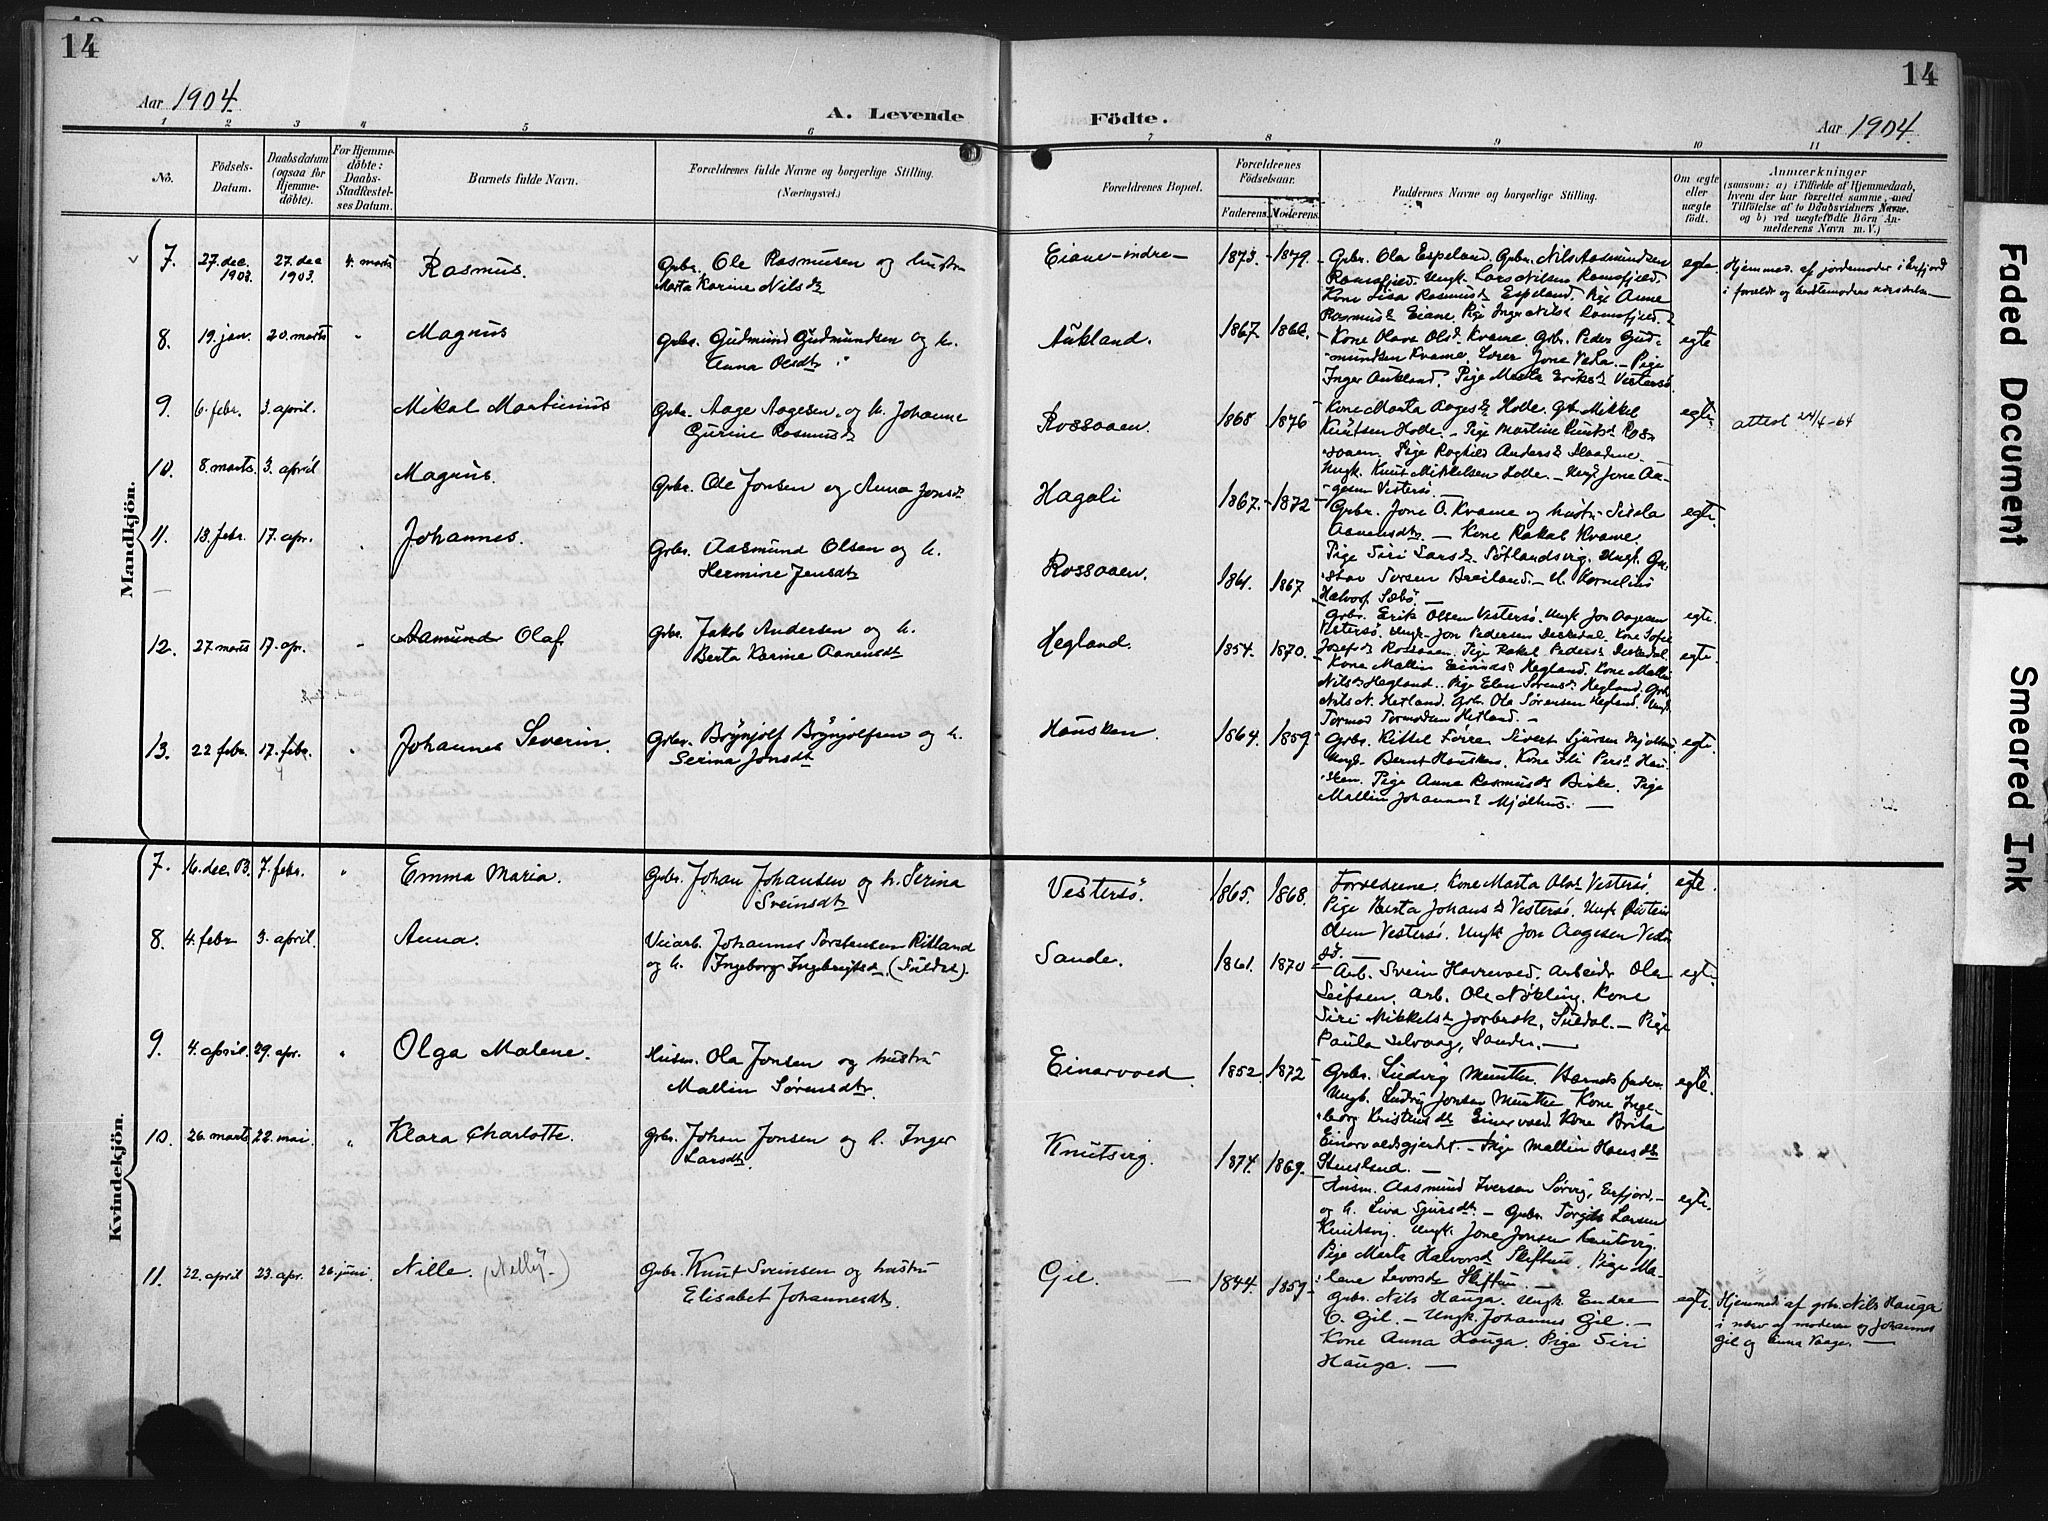 14
14
Aar 1904.
A. Levende
Födte.
Aar 1904.
1 2 3 4 5 6 7 8 9 10 11
No.
Födsels-
Datum.
Daabsdatum
(ogsaa for
Hjemme-
döbte).
For Hjemme-
döbte:
Daabs-
Stadfæstel-
ses Datum.
Barnets fulde Navn.
Forældrenes fulde Navne og borgerlige Stilling.
(Næringsvei.)
Forældrenes Bopæl.
Forældrenes
Födselsaar.
Faderens.
Moderens.
Faddernes Navne og borgerlige Stilling.
Om ægte
eller
uægte
födt.
Anmærkninger
(saasom: a) i Tilfælde af Hjemmedaab,
hvem der har forrettet samme, med
Tilföielse af to Daabsvidners Navne,
og b) ved uegtefödte Börn An-
melderens Navn m. V.)
Mandkjön.
7. 27. dec. 1903. 27. dec 1903. 4. marts Rasmus.
Gbr. Ole Rasmussen og hustru
Marta Karine Nilsdt
Eiane-indre 1873. 1879.
Gbr. Ola Espeland. Gbr. Nils Aasmundsen
Ramsfjeld. Ungk. Lars Nilsen Ramsfjeld.
Kone Lisa Rasmusdt Espeland. Pige Anne
Rasmusdt Eiane. Pige Inger Nilsdt Ramsfjeld.
egte. Hjemmed. af jordemoder i Erfjord
8. 19. jan. 20. marts " Magnus
Gbr. Gudmund Gudmundsen og h.
Anna Olsdt.
Aukland. 1867. 1866.
Kone Olava Olsdt Kvame. Gbr. Peder Gud-
mundsen Kvame. Lærer Jone Vela. Pige
Inger Aukland. Pige Marta Eriksdt Vestersø.
egte
9. 6. febr. 3. april. Mikal Martinius
Gbr. Aage Aagesen og h. Johanne
Gurine Rasmusdt
Rossaaen. 1868 1876
Kone Marta Aagesdt Holde. Gb. Mikkel
Knutsen Holde. Pige Martine Knutsdt Ros-
saaen. Pige Raghild Andersdt
Ungk. Knut Mikkelsen Holde. Ungk. Jone Aa-
gesen Vestersø.
egte. attest 24/4-64
10. 8. marts. 3. april Magnus.
Gbr. Ole Jonsen og Anna Jonsdt
Hagali 1867. 1872
Gbr. Jone A. Kvame og hustru Sissla
Aanensdtr. — Kone Rakal Kvame.
Pige Siri Larsdt Søtlandsvig. Ungk. Gu-
stav Torsen Breiland. U. Kornelius
Halvors. Sæbø.
egte.
11. 13. febr. 17. apr. Johannes.
Gbr. Aasmund Olsen og h.
Hermine Jensdt
Rossaaen. 1861. 1867
Gbr. Erik Olsen Vestersø. Ungk Jon Aagesen
Vestersø. Ungk. Jon Pedersen Kone Sofie
Josefsdt Rossaaen. Pige Rakel Pedersdt
egte.
12. 27 marts 17. apr. " Aamund Olaf
Gbr. Jakob Andersen og h.
Berta Karine Aanensdt
Hegland. 1854. 1870.
Kone Mallin Hegland. Kone Mallin
Nilsdt Hegland. Pige Elen Sørensdt Hegland. Gbr.
Nils N. Hetland. Gbr. Ola Sørensen Hegland. Ungk
Tormod Tormodsen Hetland.
egte.
13. 22 febr. 17. febr. " Johannes Severin.
Gbr. Brynjolf Brynjolfsen og h.
Serina Jonsdt
Hausken. 1864. 1859.
Gbr. Kittel Førre. Sivert Sjursen Mjølhus.
Ungk. Bernt Hausken. Kone Eli Persdt Hau-
sken. Pige Anna Rasmusdt Birke. Pige
Mallin Johannesdt Mjølhus. —
egte.
Kvindekjön.
7. 16. dec. 7. febr. " Emma Maria.
Gbr. Johan Johansen og h. Serina
Sveinsdt
Vestersø. 1865. 1868.
Forældrene. Kone Marta Olsdt Vestersø.
Pige Berta Johansdt Vestersø. Ungk Øistein
Olsen Vestersø. Ungk Jon Aagesen Vester-
sø.
egte.
8. 4. febr 3. april. Anna.
Johannes Torstensen Ritland
og h. Ingeborg Ingebrigtsdt. (Suldal).
Sande. 1861. 1870
Arb. Svein Havrevoed. Arbeidr Ole
Leifsen. Arb. Ole Nøkling. Kone
Siri Mikkelsdt Jorbræk, Suldal. — Pige
Paula Selvaag, Sande. —
egte.
9. 4. april. 29. apr. " Olga Malene.
Husm. Ola Jonsen og hustru
Mallin Sørensdtr.
Einarvoed 1852. 1872
Gbr. Ludvig Munthe. Barnets fader.
Ungk. Ludvig Jonsen Munthe. Kone Inge-
borg Kristiansdt Einarvoed. Kone Brita
Einarvoedsgjerdet. — Pige Mallin Hansdt
Stuesland. —
egte.
10. 26. marts 22. mai. " Klara Charlotte.
Gbr. Johan Jonsen og h. Inger
Larsdt.
Knutsvig. 1874. 1869.
Husm. Aasmund Iversen Sørvig, Erfjord.
og h. Siva Sjursdt. — Gbr. Torgils Larsen
Knutsvig. Ungk. Jone Jonsen Knutsvig.
Pige Marta Halvorsdt Skiftun. Pige Ma-
lene Levorsdt Skiftun. —
egte.
11. 22. april 23. apr. 26. juni. Nille. (Nelly)
Gbr. Knut Sveinsen og hustru
Elisabet Johannesdt.
Gil. 1844. 1859
Gbr. Nils Hauga. Ungk. Endre
O. Gil. — Ungk. Johannes Gil. —
Kone Anna Hauga. Pige Siri
Hauga. —
egte. Hjemmed. af gbr. Nils Hauga
i nærv. af moderen og Johannes
Gil og Anna Vaage. —
Faded Document
Smeared Ink